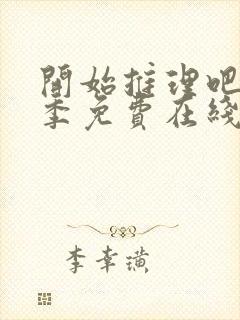 開始推理吧
季免費在綫
李幸璜